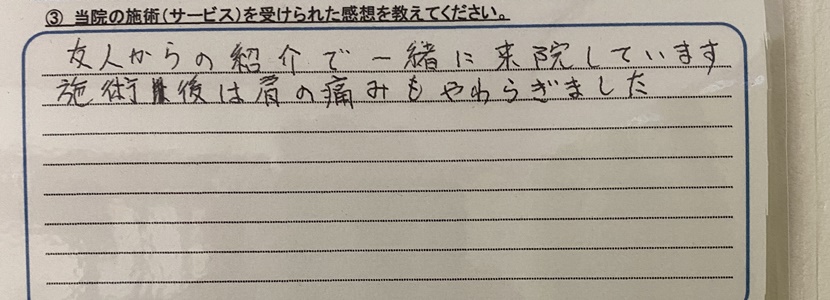 ③ 当院の施術(サービス)を受けられた感想を教えてください。
友人からの紹介で一緒に来院しています
施術後は肩の痛みもやわらぎました